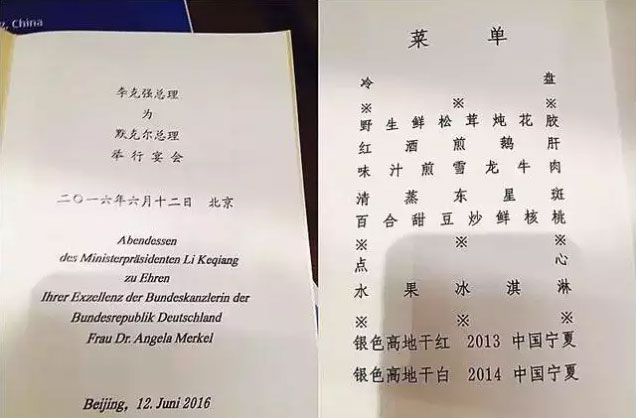 , China
李克强总理
为
默克尔总理
举行宴会
二〇一六年六月十二日 北京
Abendessen
des Ministerpräsidenten Li Keqiang
zu Ehren
Ihrer Exzellenz der Bundeskanzlerin der
Bundesrepublik Deutschland
Frau Dr. Angela Merkel
Beijing, 12. Juni 2016
菜 单
冷 盘
※ ※ ※
野生鲜松茸炖花胶
红酒煎鹅肝
味汁煎雪龙牛肉
清蒸东星斑
百合甜豆炒鲜核桃
※ ※ ※
点 心
水果冰淇淋
※ ※ ※
银色高地干红 2013 中国宁夏
银色高地干白 2014 中国宁夏